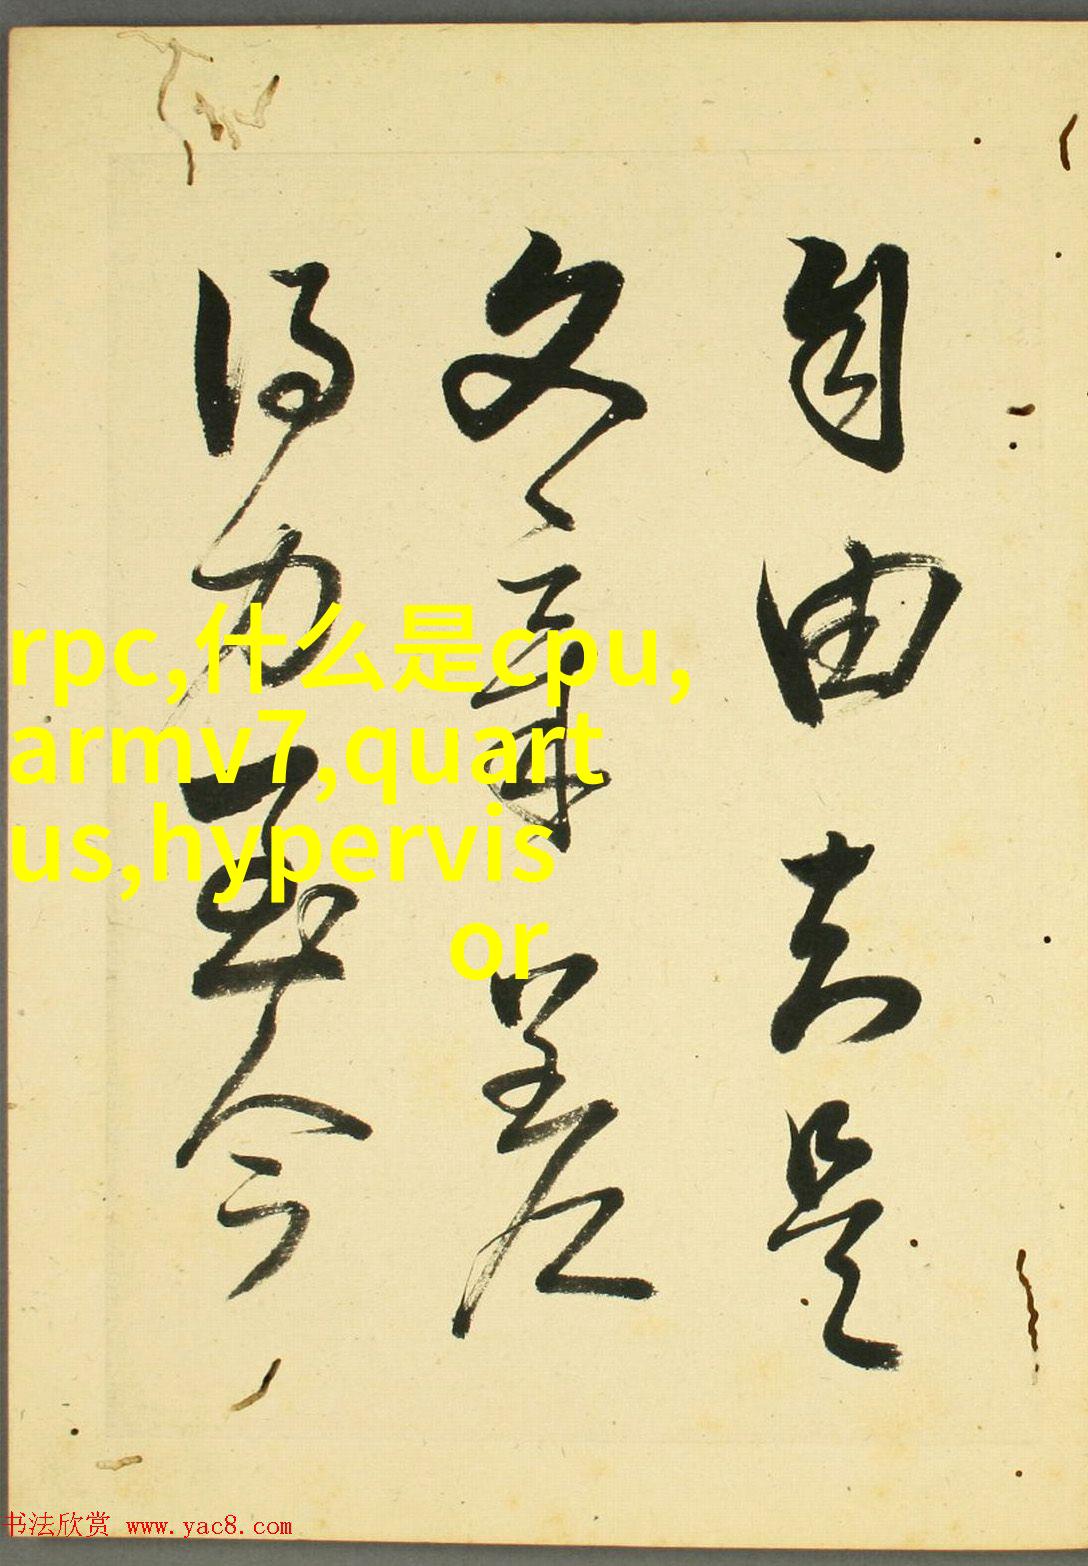 自由是
文章
得力今
rpc,什么是cpu,
armv7,quart
us,hypervis
or
书法欣赏 www.yac8.com